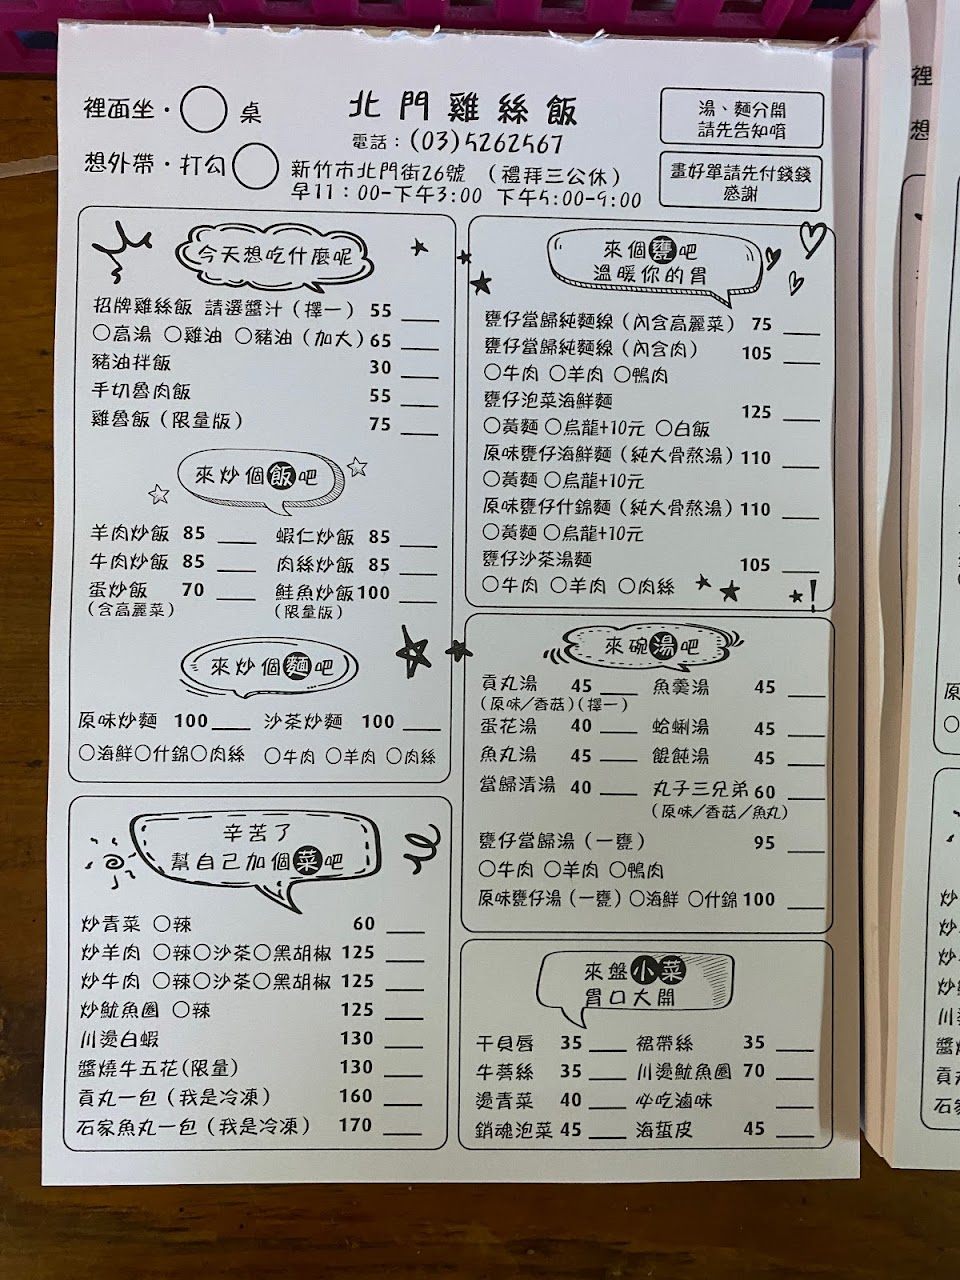 裡面坐・○桌
想外帶・打勾○
北門雞絲飯
電話：(03)5262567
新竹市北門街26號 （禮拜三公休）
早11：00-下午3:00 下午5:00-9:00
湯、麵分開
請先告知唷
畫好單請先付錢錢
感謝
今天想吃什麼呢
招牌雞絲飯 請選醬汁（擇一） 55 ___
○高湯 ○雞油 ○豬油（加大）65 ___
豬油拌飯 30 ___
手切魯肉飯 55 ___
雞魯飯（限量版） 75 ___
來炒個飯吧
羊肉炒飯 85 ___ 蝦仁炒飯 85 ___
牛肉炒飯 85 ___ 肉絲炒飯 85 ___
蛋炒飯 70 ___ 鮭魚炒飯100 ___
（含高麗菜） （限量版）
來炒個麵吧
原味炒麵 100 ___ 沙茶炒麵 100 ___
○海鮮○什錦○肉絲 ○牛肉 ○羊肉 ○肉絲
辛苦了
幫自己加個菜吧
炒青菜 ○辣 60 ___
炒羊肉 ○辣○沙茶○黑胡椒 125 ___
炒牛肉 ○辣○沙茶○黑胡椒 125 ___
炒魷魚圈 ○辣 125 ___
川燙白蝦 130 ___
醬燒牛五花(限量) 130 ___
貢丸一包（我是冷凍） 160 ___
石家魚丸一包（我是冷凍） 170 ___
來個甕吧
溫暖你的胃
甕仔當歸純麵線（內含高麗菜） 75 ___
甕仔當歸純麵線（內含肉） 105 ___
○牛肉 ○羊肉 ○鴨肉
甕仔泡菜海鮮麵 125 ___
○黃麵 ○烏龍+10元 ○白飯
原味甕仔海鮮麵（純大骨熬湯）110 ___
○黃麵 ○烏龍+10元
原味甕仔什錦麵（純大骨熬湯）110 ___
○黃麵 ○烏龍+10元
甕仔沙茶湯麵 105 ___
○牛肉 ○羊肉 ○肉絲
來碗湯吧
貢丸湯 45 ___ 魚羹湯 45 ___
（原味／香菇）（擇一）
蛋花湯 40 ___ 蛤蜊湯 45 ___
魚丸湯 45 ___ 餛飩湯 45 ___
當歸清湯 40 ___ 丸子三兄弟 60 ___
（原味／香菇／魚丸）
甕仔當歸湯（一甕） 95 ___
○牛肉 ○羊肉 ○鴨肉
原味甕仔湯（一甕）○海鮮 ○什錦 100 ___
來盤小菜
胃口大開
干貝唇 35 ___ 裙帶絲 35 ___
牛蒡絲 35 ___ 川燙魷魚圈 70 ___
燙青菜 40 ___ 必吃滷味 ___
銷魂泡菜 45 ___ 海蜇皮 45 ___